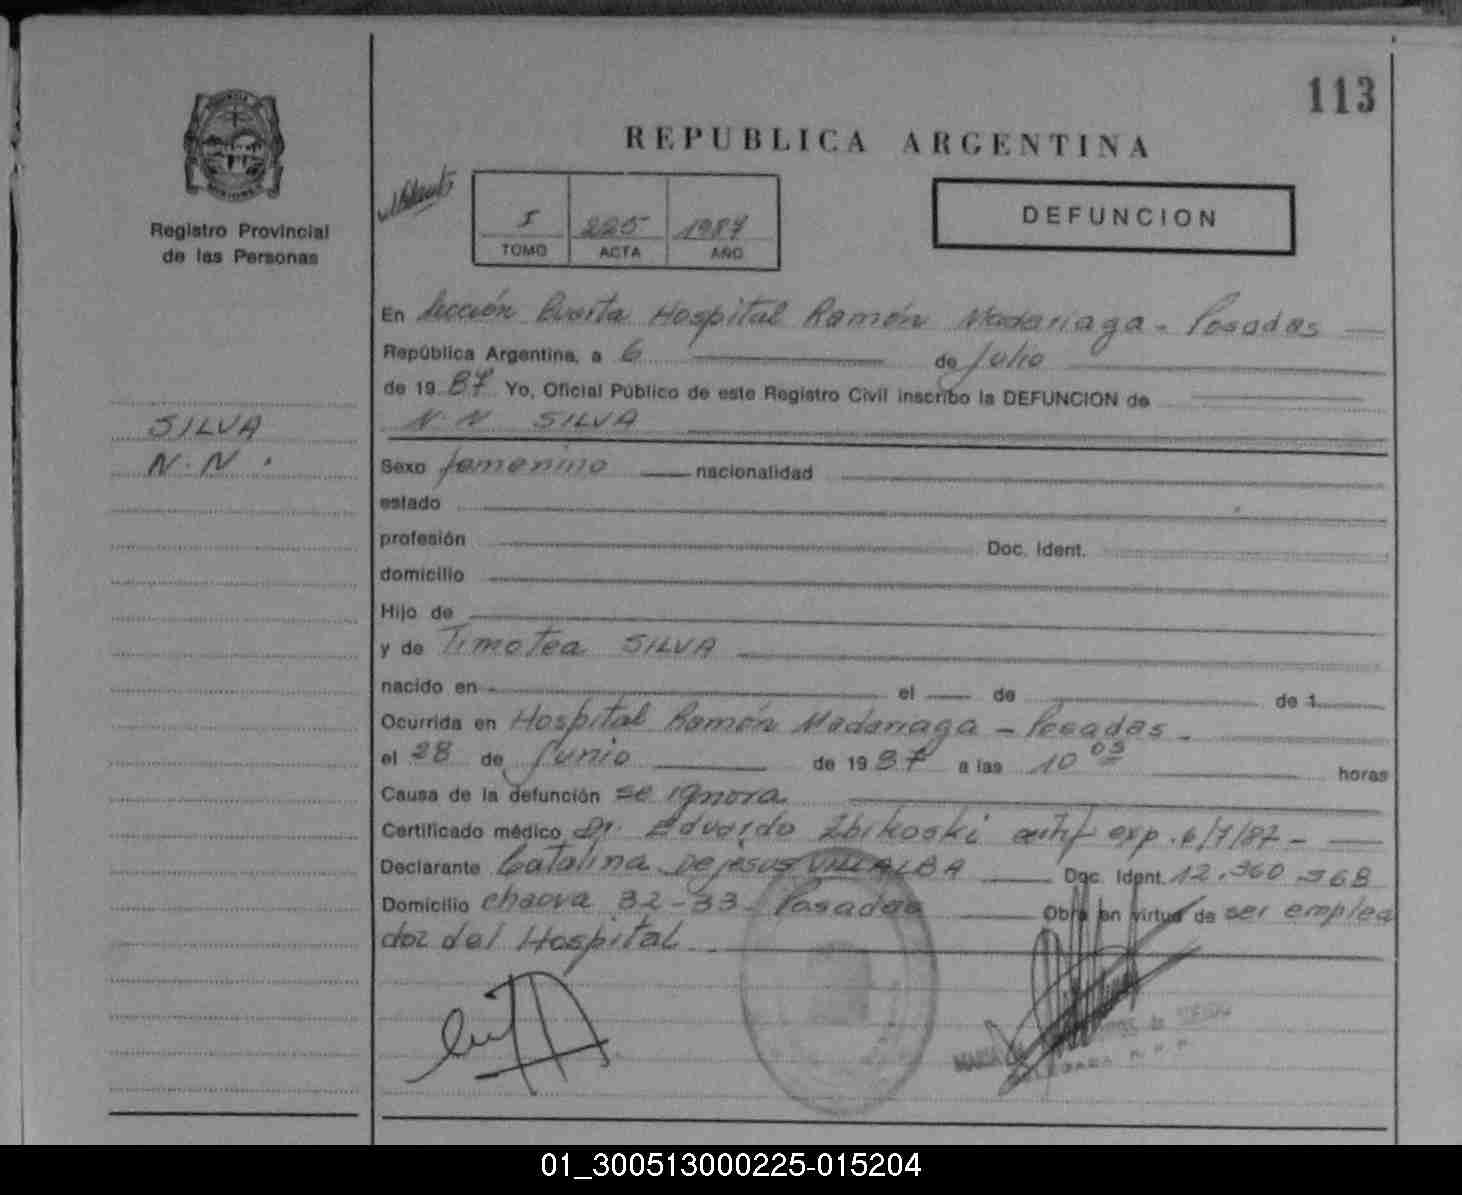 113
REPUBLICA ARGENTINA
Registro Provincial
de las Personas
I 225 1987
TOMO ACTA AÑO
DEFUNCION
En Sección Cuarta Hospital Ramón Madariaga - Posadas
República Argentina, a 6 de Julio
de 19 87 Yo, Oficial Público de este Registro Civil inscribo la DEFUNCION de
SILVA
N.N.
N N SILVA
Sexo femenino nacionalidad
estado
profesión Doc. Ident.
domicilio
Hijo de
y de Timotea SILVA
nacido en el de de 1
Ocurrida en Hospital Ramón Madariaga - Posadas -
el 28 de Junio de 19 87 a las 10 05 horas
Causa de la defunción se ignora
Certificado médico Dr. Eduardo Zbikoski exp. 6/7/87 -
Declarante Catalina De jesus VILLALBA Doc. Ident. 12.360.368
Domicilio chacra 32-33- Posadas Obra en virtud de ser emplea
doz del Hospital
MARIA
DELEGADA R. P. P.
01_300513000225-015204